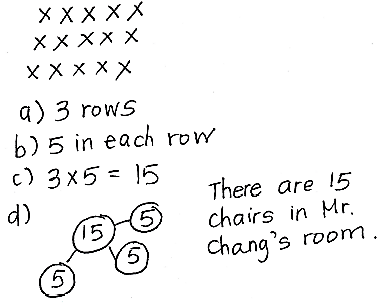 X X X X X
X X X X X
X X X X X
a) 3 rows
b) 5 in each row
c) 3 x 5 = 15
d)
15
5
5
5
There are 15
chairs in Mr.
Chang's room.